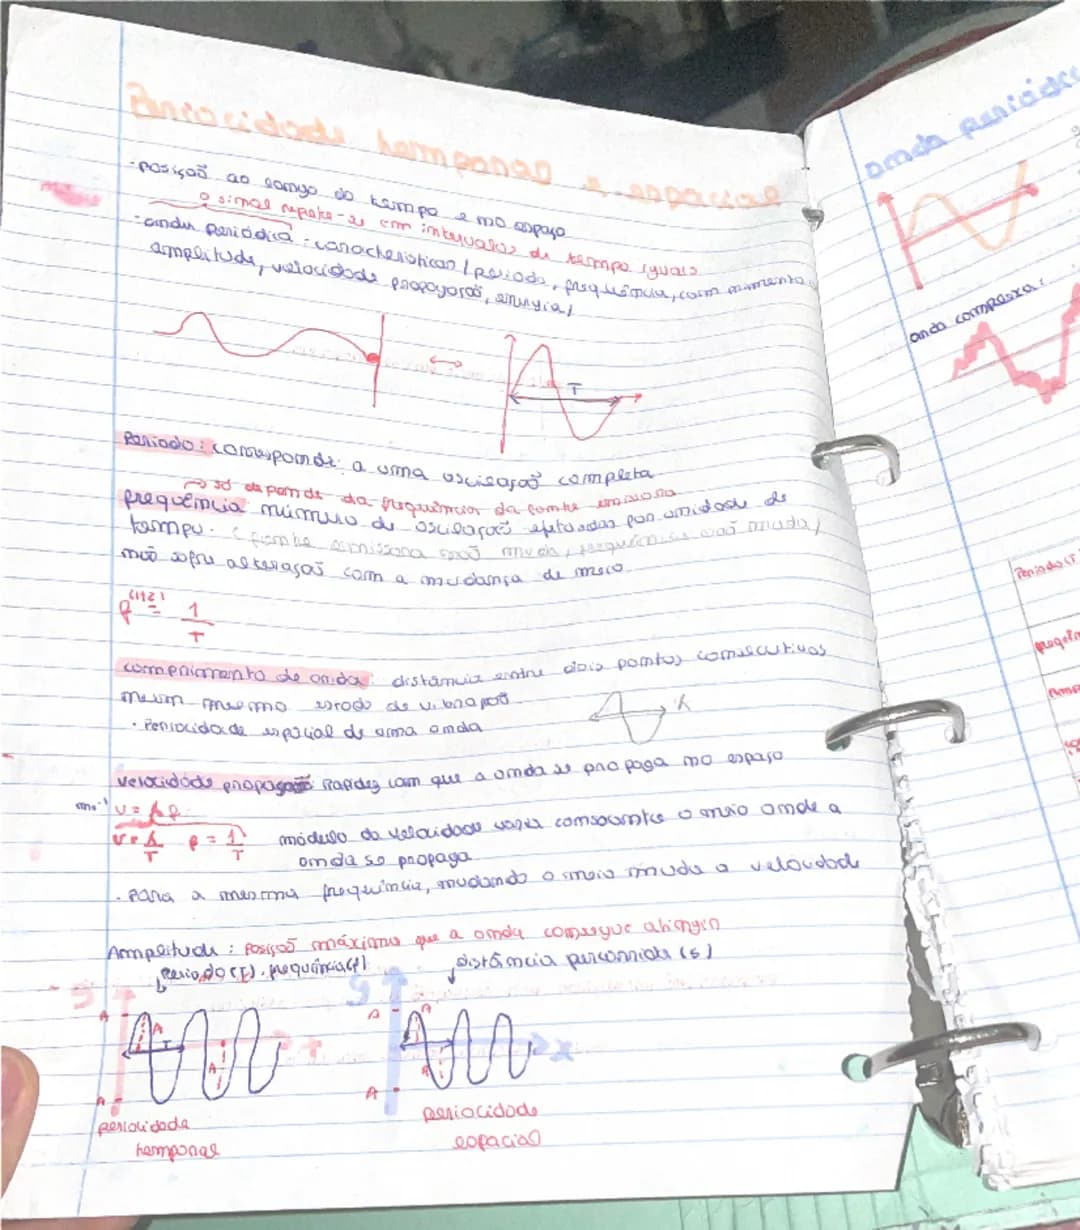 Periocidade temporal e espacial
• posição ao longo do tempo e no espaço
o sinal repete-se em intervalos de tempo iguais
- onda periódica - caracteristicas (periodo, frequência, com
amplitude, velocidade propagação, energia)
T
Periodo: corresponde a uma oscilação completa
→ só depende da frequência da fonte emissora
frequência número de oscilações efetuadas por unidade de
tempo. (fonte emissora não muda, frequência não muda)
não sofre alteração com a mudança de meio
f (Hz) = 1/T
comprimento de onda: distância entre dois pontos consecutivos
num mesmo estado de vibração
λ
• Periocidade espacial de uma onda
velocidade propagação: Rapidez com que a onda se propaga no espaço
v = λf
v = λ/T f = 1/T módulo da velocidade varia consoante o meio onde a
onda se propaga
. Para a mesma frequência, mudando o meio muda a velocidade
Amplitude: Posição máxima que a onda consegue atingir
Periodo (T). frequência (f)
distância percorrida (s)
A A T A A
y A A A A x
periocidade
temporal
periocidade
espacial
onda periódic
onda complexa:
Periodo (T